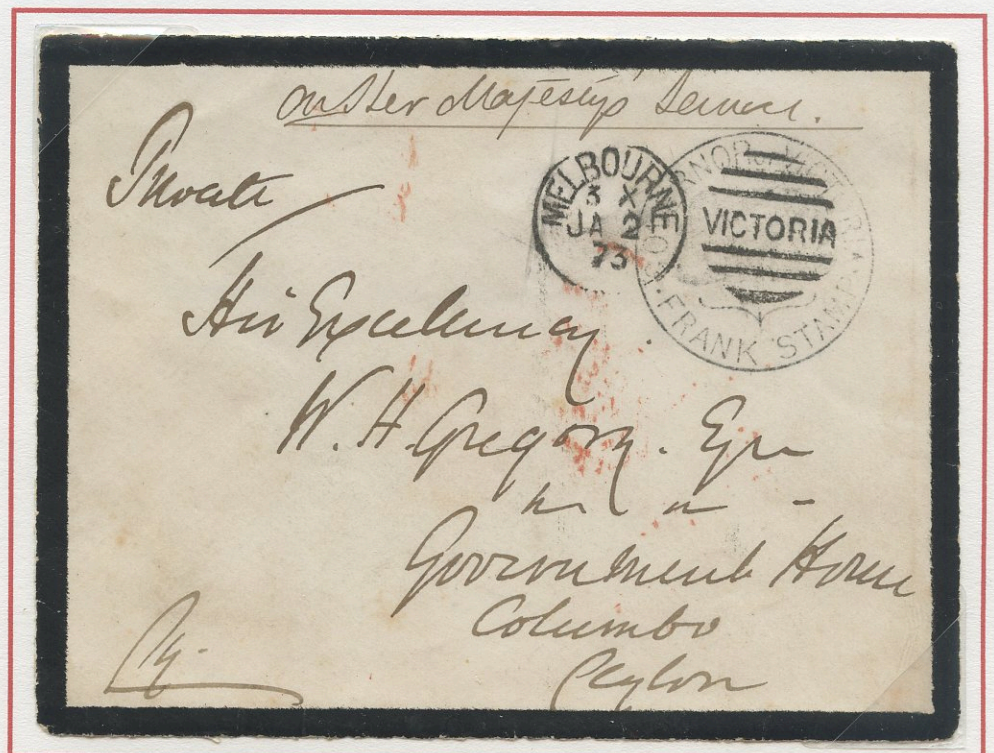 On Her Majesty's Service.
Private
MELBOURNE
3 X
JA 2
73
VICTORIA
FRANK STAMP
His Excellency
W. H. Gregory. Esqre
Government House
Columbo
Ceylon